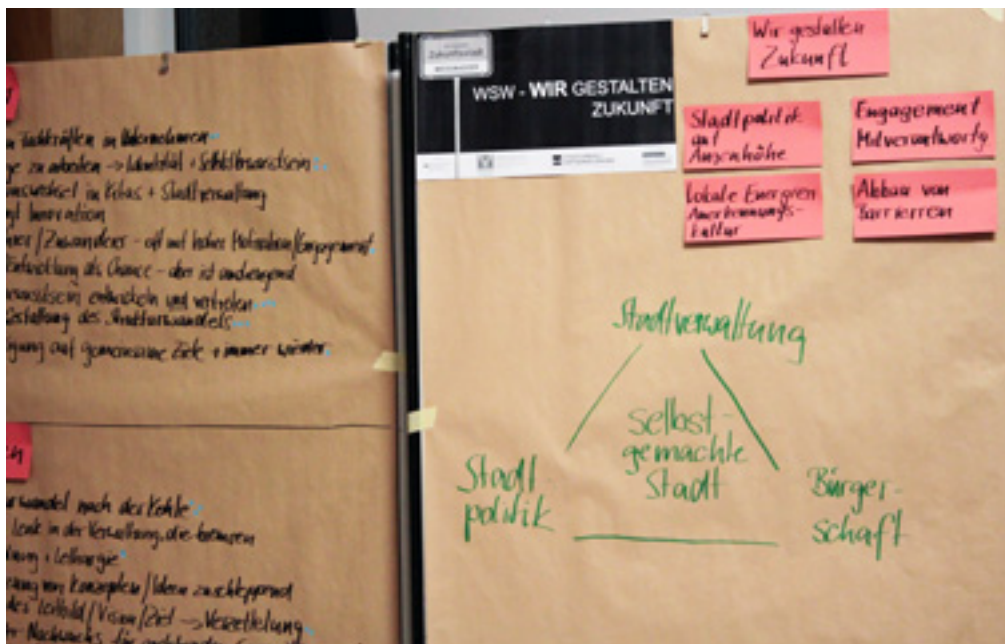 n Fachkräften in Unternehmen
ge zu arbeiten → Identität + Selbstbewusstsein
wechsel in Kitas + Stadtverwaltung
Innovation
/Zuwanderer - oft mit hoher Motivation/Engagement
entwicklung als Chance - aber ist anstrengend
bewusstsein entwickeln und vertreten
Gestaltung des Strukturwandels
gung auf gemeinsame Ziele + immer wieder
en
wandel nach der Kohle
Leute in der Verwaltung, die bremsen
+ Lethargie
von Konzepten/Ideen zu schleppend
des Leitbild/Vision/Ziel → Verzettelung
Nachwuchs für
Zukunftsstadt
WSW - WIR GESTALTEN
ZUKUNFT
Wir gestalten
Zukunft
Stadtpolitik
auf
Augenhöhe
Engagement
Mitverantwortg
Lokale Energien
Anerkennungs-
kultur
Abbau von
Barrieren
Stadtverwaltung
selbst-
gemachte
Stadt
Stadt
politik
Bürger-
schaft